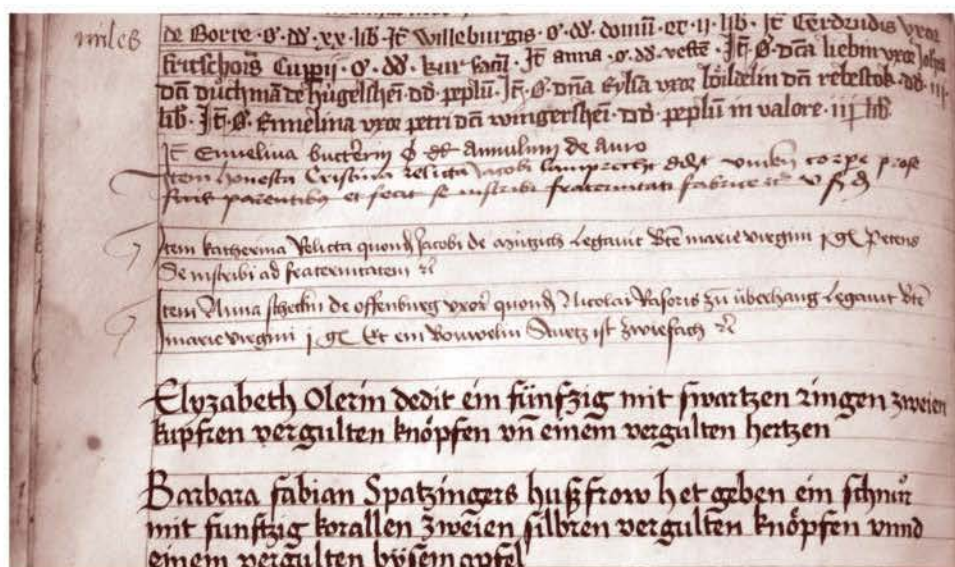 miles
de Borre · O · dd · xx · lib · Jt Willeburgis · O · dd · domū · et · ii · lib · Jt Gerdrudis vxor
fritschois Cuppii · O · dd · kursañ · Jt anna · O · dd · vestē · Jt · O · dna liebin vxor
dñi de hügelsheī · dd · peplū · Jt · O · dña Eylsa vxor dñi rebestok · dd · iii
lib · Jt · O · Ennelina vxor petri dñi wingershei · dd · peplū in valore · iii lib
Jt Ennelina O dt annulum de auro
Item honesta Cristina relicta Jacobi lamprecht corpe
suis parentibus et fecit se inscribi fraternitati fabrice
Item katherina Relicta quond Jacobi de Legauit bte marie virgini j gl Petens
Se inscribi ad fraternitatem
Item Anna de offenburg vxor quond Nicolai Rasoris zu überhang Legauit bte
marie virgini j gl Et ein Sturtz ist zwiefach
Elyzabeth Olerin dedit ein fünfzig mit swartzen ringen zweien
kupfren vergulten knöpfen vñ einem vergulten hertzen
Barbara fabian Spatzingers hußfrow het geben ein schnůr
mit funftzig korallen zweien silbren vergulten knöpfen vnnd
einem vergulten bysem apfel